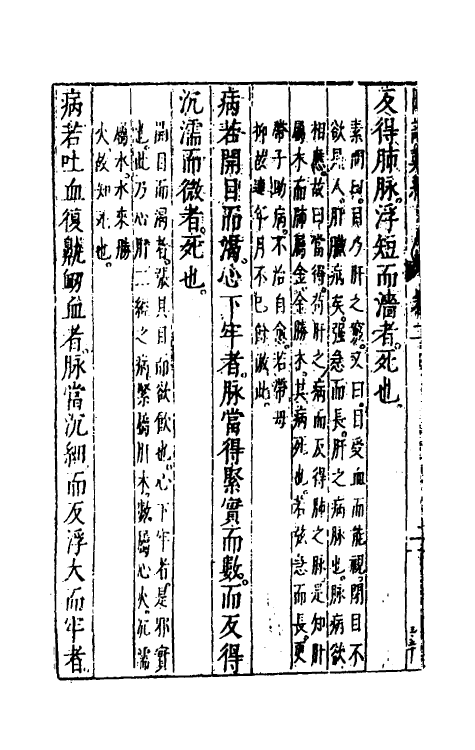 反得肺脉浮短而濇者死也
素問曰目乃肝之竅又曰目受血而能視閉目不
欲見人肝臓病矣强急而長肝之病脉也脉病欲
相應故曰當得前肝之病而反得肺之脉是知肝
屬木而肺屬金金勝木其病死也若弦急而長更
勝子助病不治自愈若帶母
抑故連年月不已餘倣此
病若開目而渴心下牢者脉當得緊實而數而反得
沉濡而微者死也
開目而渴者張其目而欲飲也心下牢者是邪實
也此乃心肝二經之病緊屬肝木數屬心火沉濡
屬水水來勝
火故知死也
病若吐血復鼽衂血者脉當沉細而反浮大而牢者